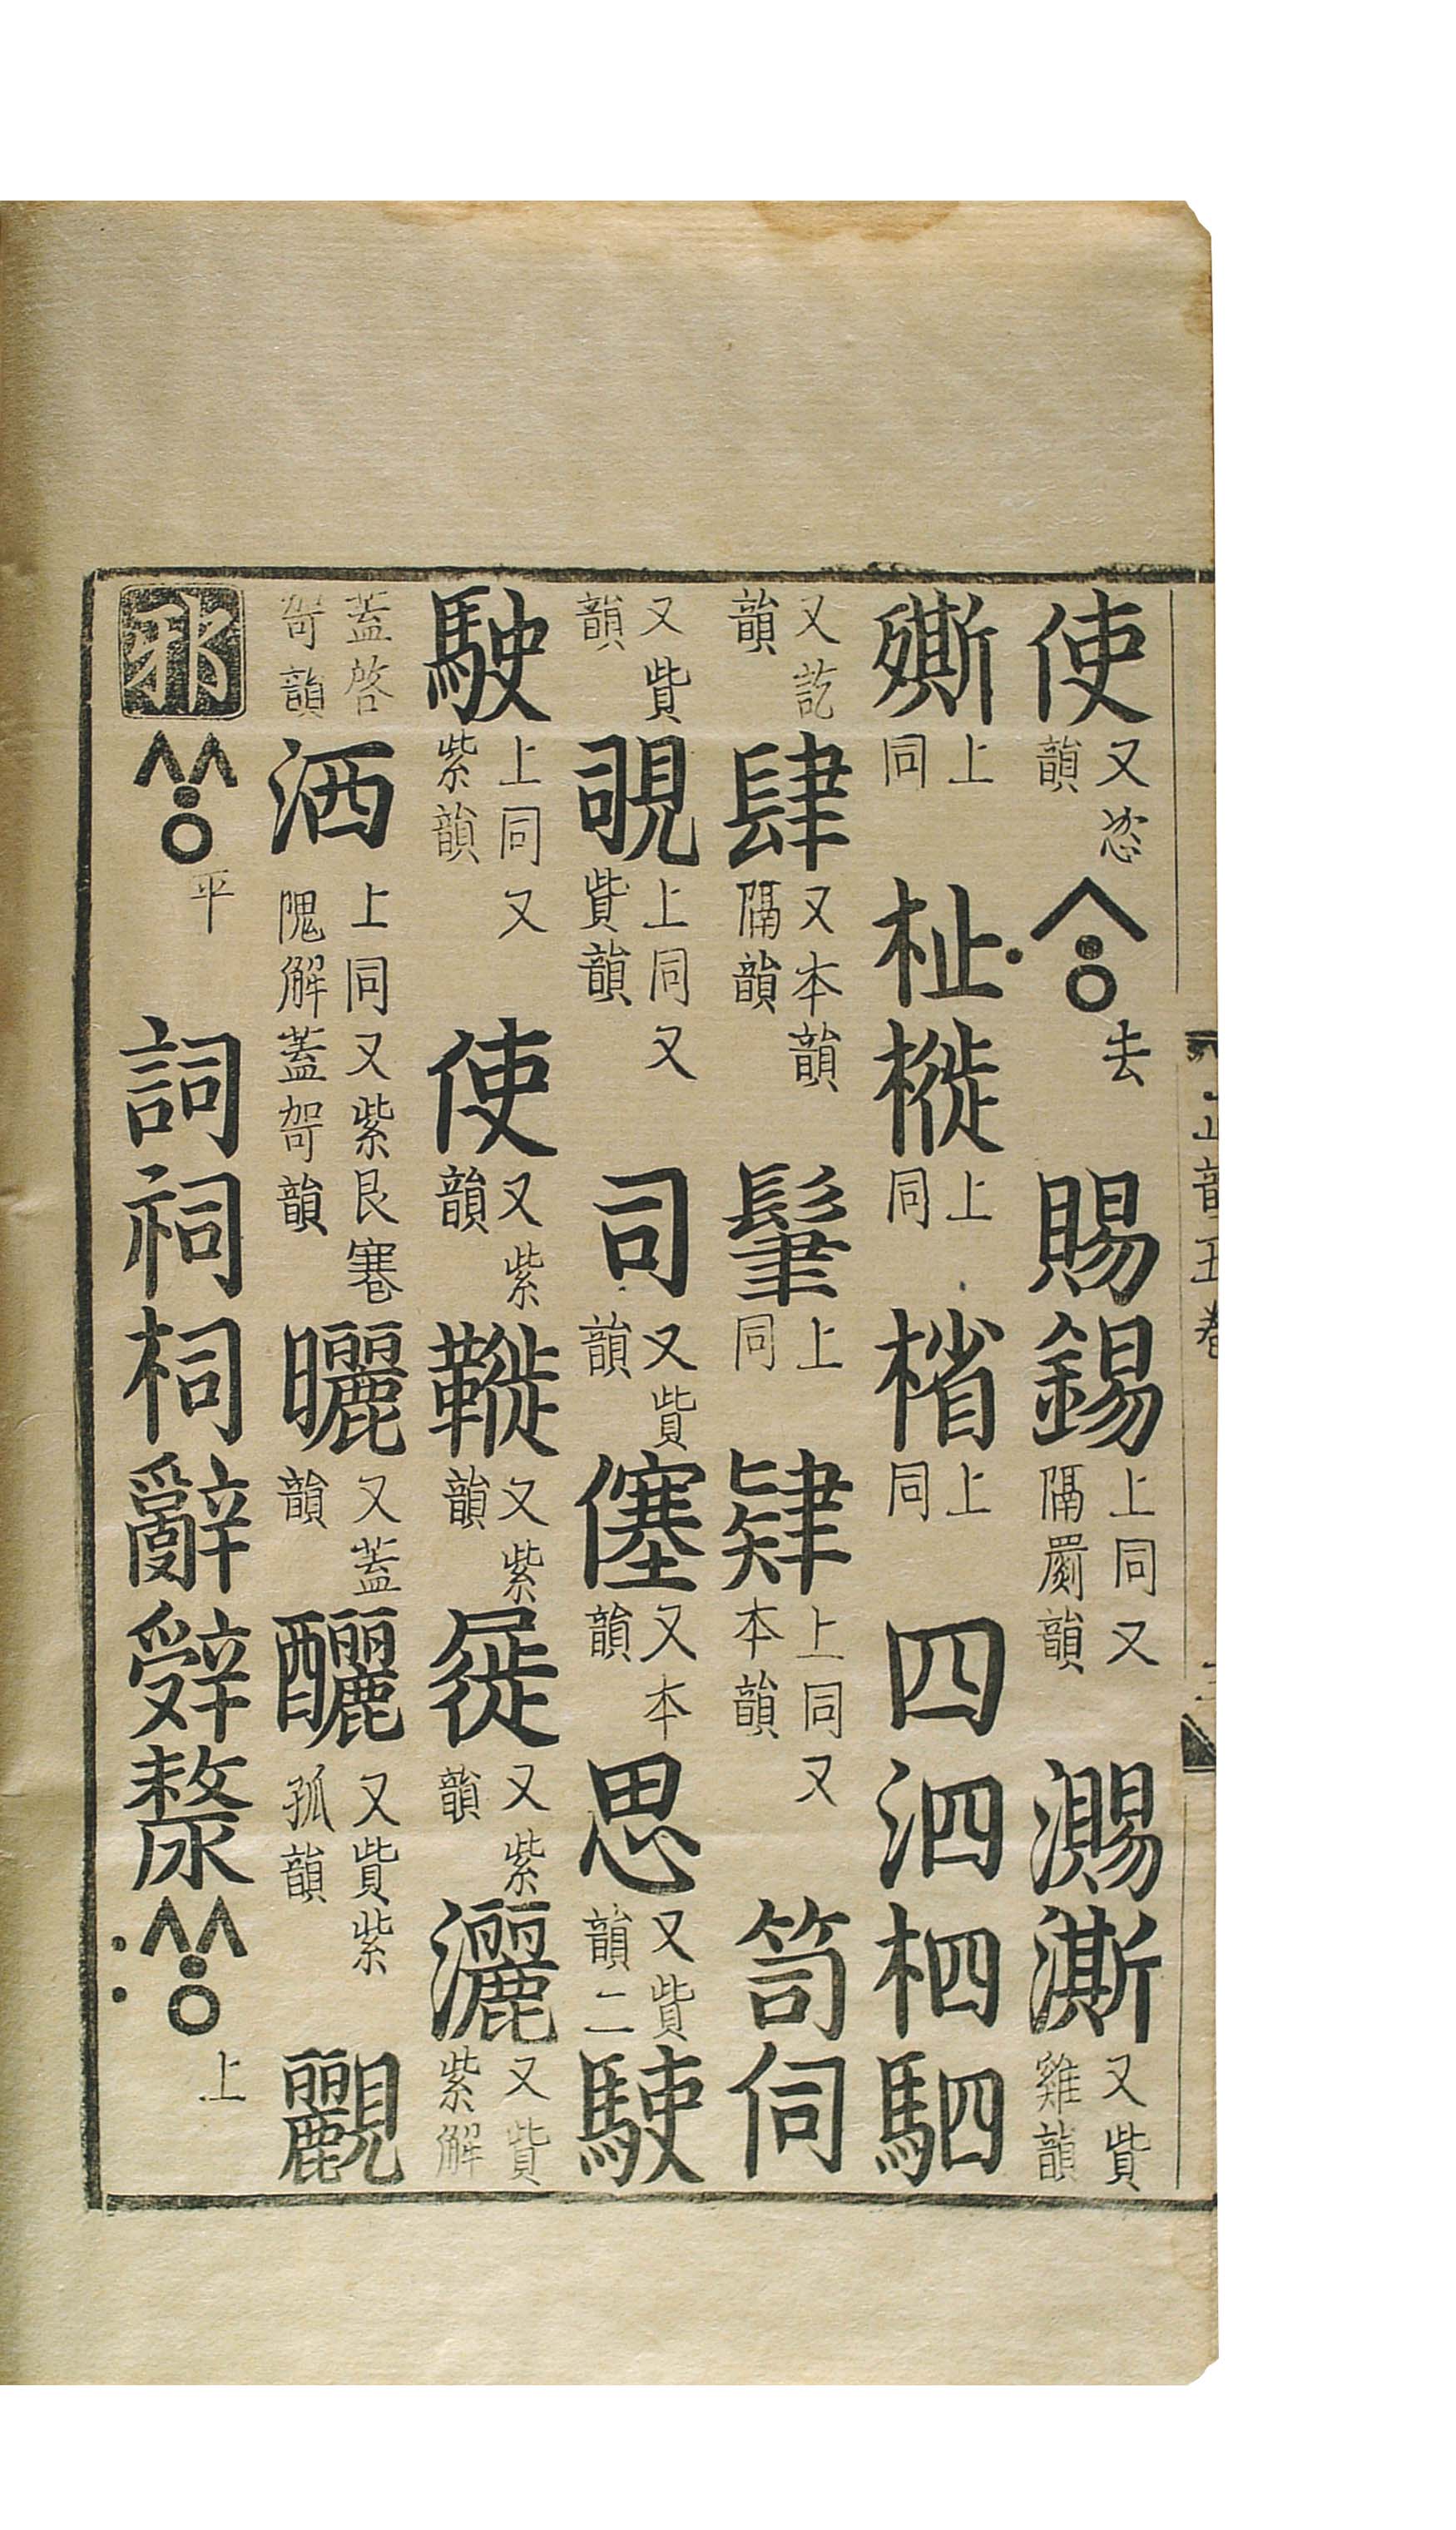 使又恣韻ᄼᆞᆼ去賜錫上同又隔罽韻瀃澌又貲雞韻
上同杫上同㮐上同四泗柶駟
又訖韻肆又本韻隔韻上同肄上同又本韻笥伺
又貲韻覗上同又貲韻司又貲韻僿又本韻思又貲韻二駛
駛上同又紫韻使又紫韻又紫韻屣又紫韻灑又貲紫解
蓋啓哿韻洒上同又紫艮寋隗解蓋哿韻曬又蓋韻釃又貲紫孤韻䚕
邪ᄽᆞᆼ平詞祠柌辭辤漦ᄽᆞᆼ上
正韻五卷